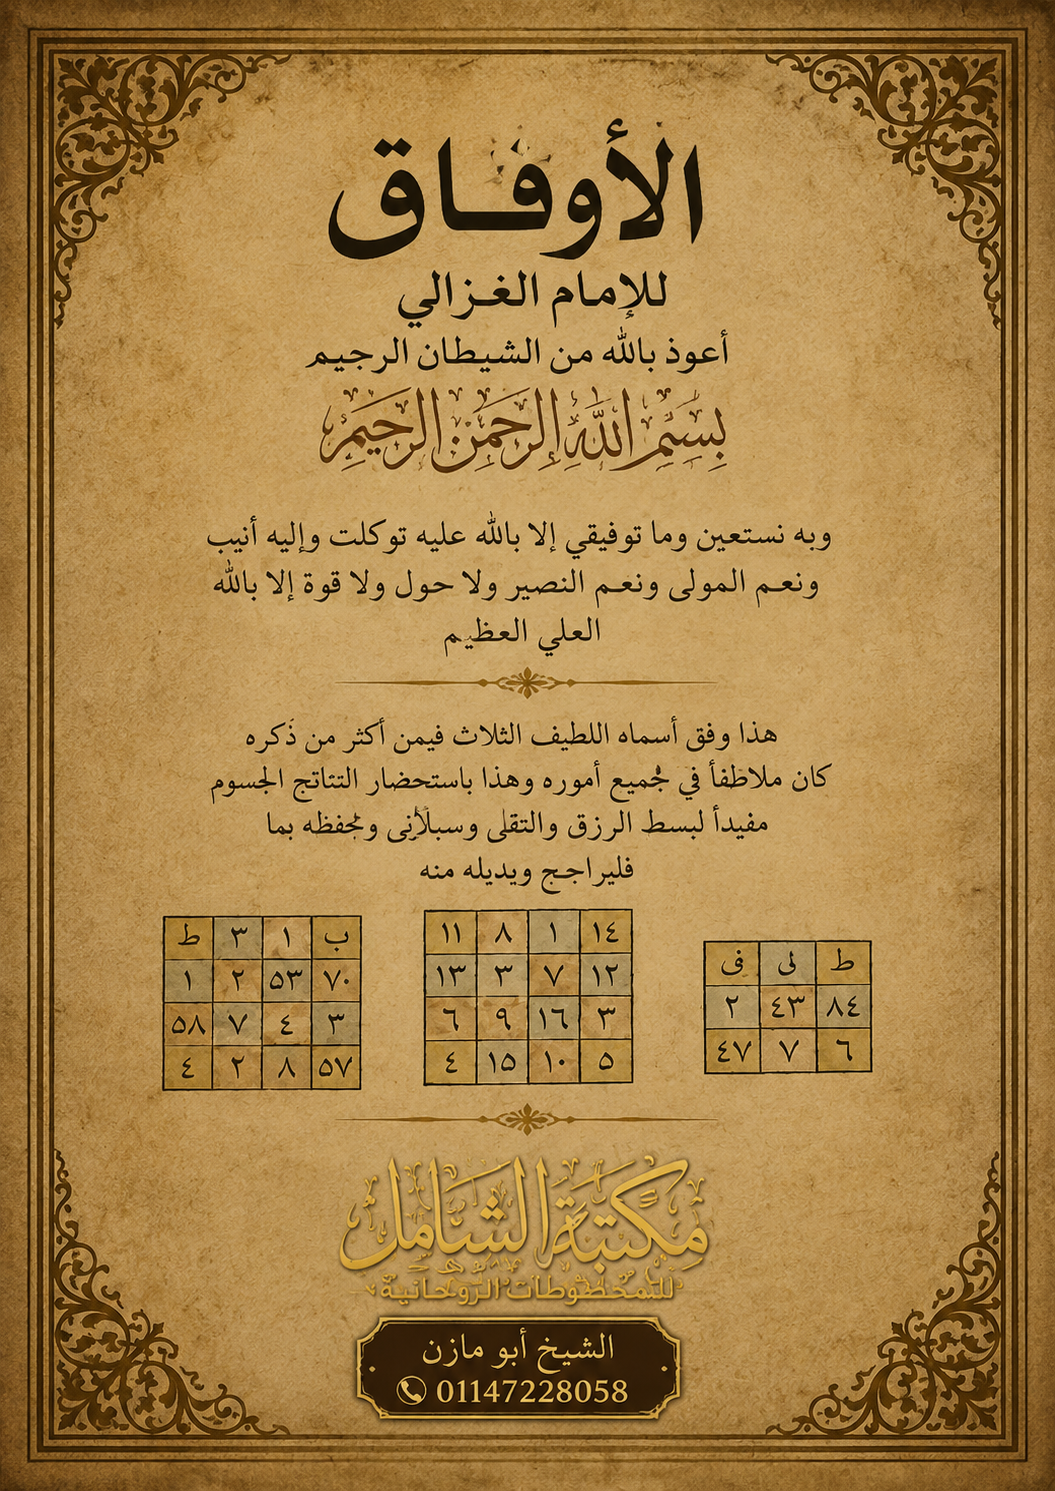 الأوفاق
للإمام الغزالي
أعوذ بالله من الشيطان الرجيم
بِسْمِ اللَّهِ الرَّحْمَنِ الرَّحِيمِ
وبه نستعين وما توفيقي إلا بالله عليه توكلت وإليه أنيب
ونعم المولى ونعم النصير ولا حول ولا قوة إلا بالله
العلي العظيم
هذا وفق أسماه اللطيف الثلاث فيمن أكثر من ذَكره
كان ملاطفأ في جميع أموره وهذا باستحضار التتاتج الجسوم
مفيدأ لبسط الرزق والتقلى ومحفظه بما
فليراجج ويديله منه
ط ٣ ١ ب
١ ٢ ٥٣ ٧٠
٥٨ ٧ ٤ ٣
٤ ٢ ٨ ٥٧
١١ ٨ ١ ١٤
١٣ ٣ ٧ ١٢
٦ ٩ ١٦ ٣
٤ ١٥ ١٠ ٥
فى لى ط
٢ ٤٣ ٨٤
٤٧ ٧ ٦
مكتبة الشامل
للمخطوطات الروحانية
الشيخ أبو مازن
01147228058